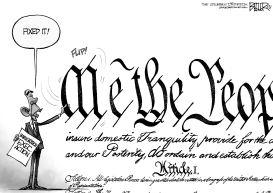 THE COLUMBUS DISPATCH
FIXED IT!
FLIP!
Me the Peop
insure domestic Tranquility, provide for the
and our Posterity, do ordain and establish th
Article. I.